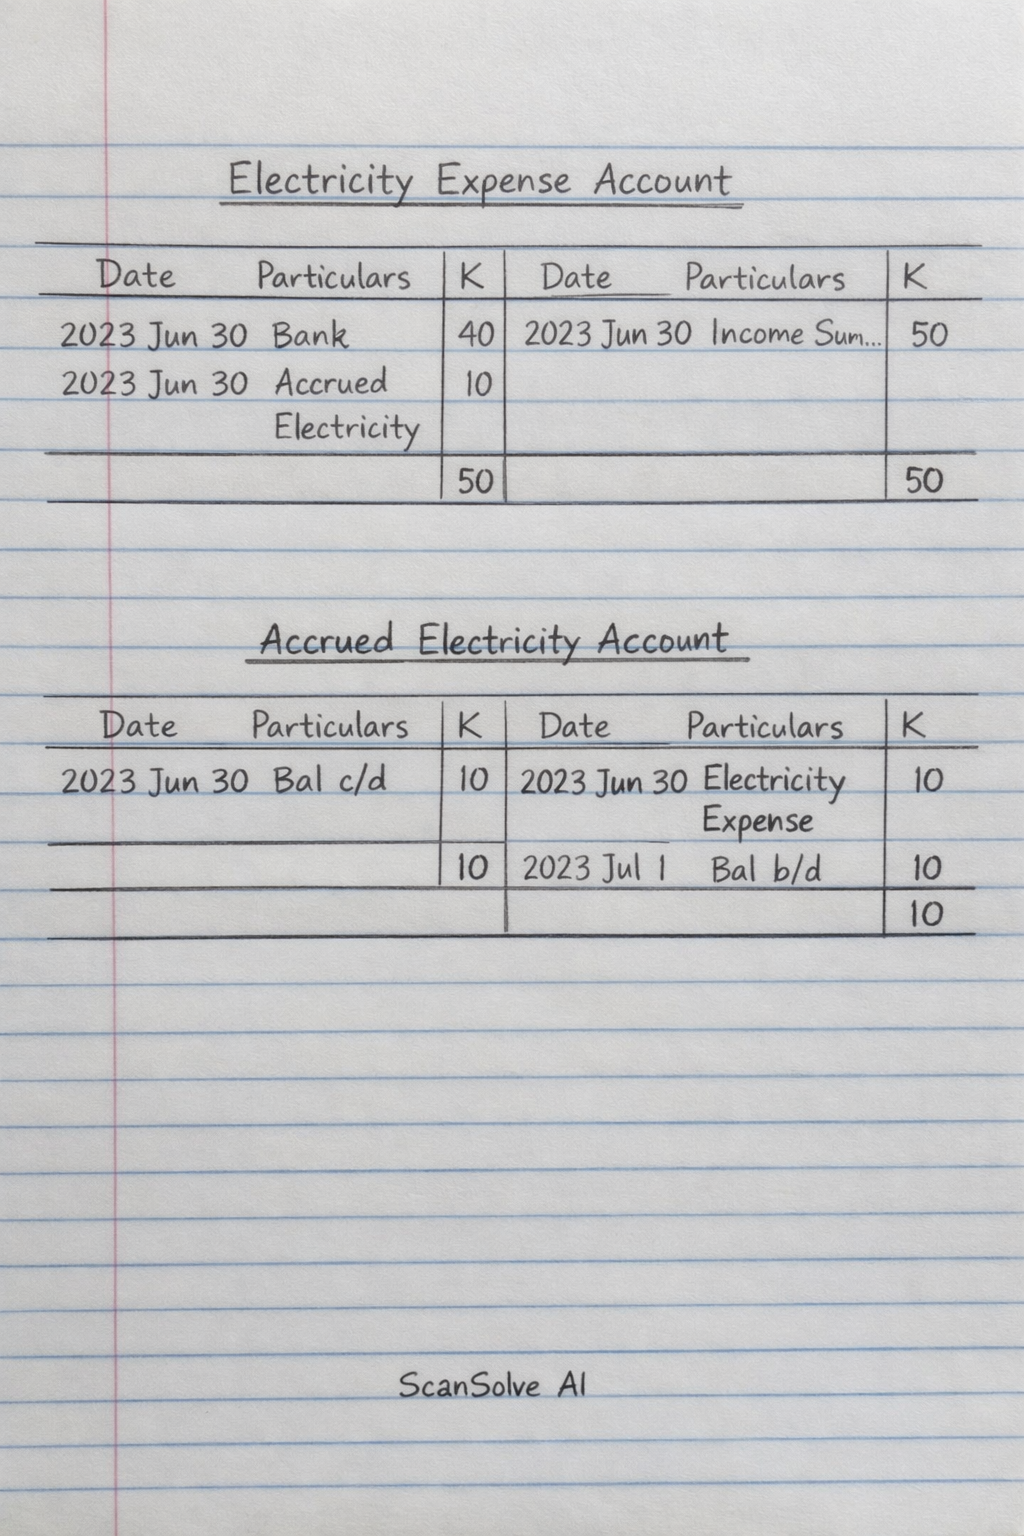 Electricity Expense Account
Date Particulars K Date Particulars K
2023 Jun 30 Bank 40 2023 Jun 30 Income Sum... 50
2023 Jun 30 Accrued 10
Electricity
50 50
Accrued Electricity Account
Date Particulars K Date Particulars K
2023 Jun 30 Bal c/d 10 2023 Jun 30 Electricity 10
Expense
10 2023 Jul 1 Bal b/d 10
10
ScanSolve AI